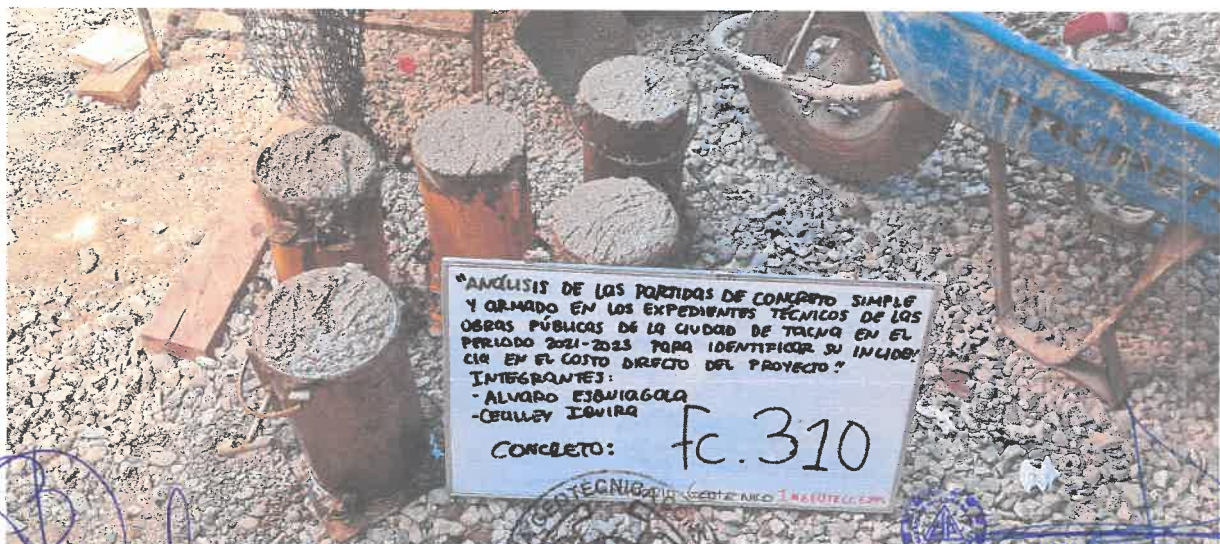 TRUPER
"ANÁLISIS DE LAS PARTIDAS DE CONCRETO SIMPLE
Y ARMADO EN LOS EXPEDIENTES TÉCNICOS DE LAS
OBRAS PÚBLICAS DE LA CIUDAD DE TACNA EN EL
PERIODO 2021-2023 PARA IDENTIFICAR SU INCIDEN
CIA EN EL COSTO DIRECTO DEL PROYECTO"
INTEGRANTES:
- ALVARO
-
CONCRETO: Fc.310
GEOTECNICO